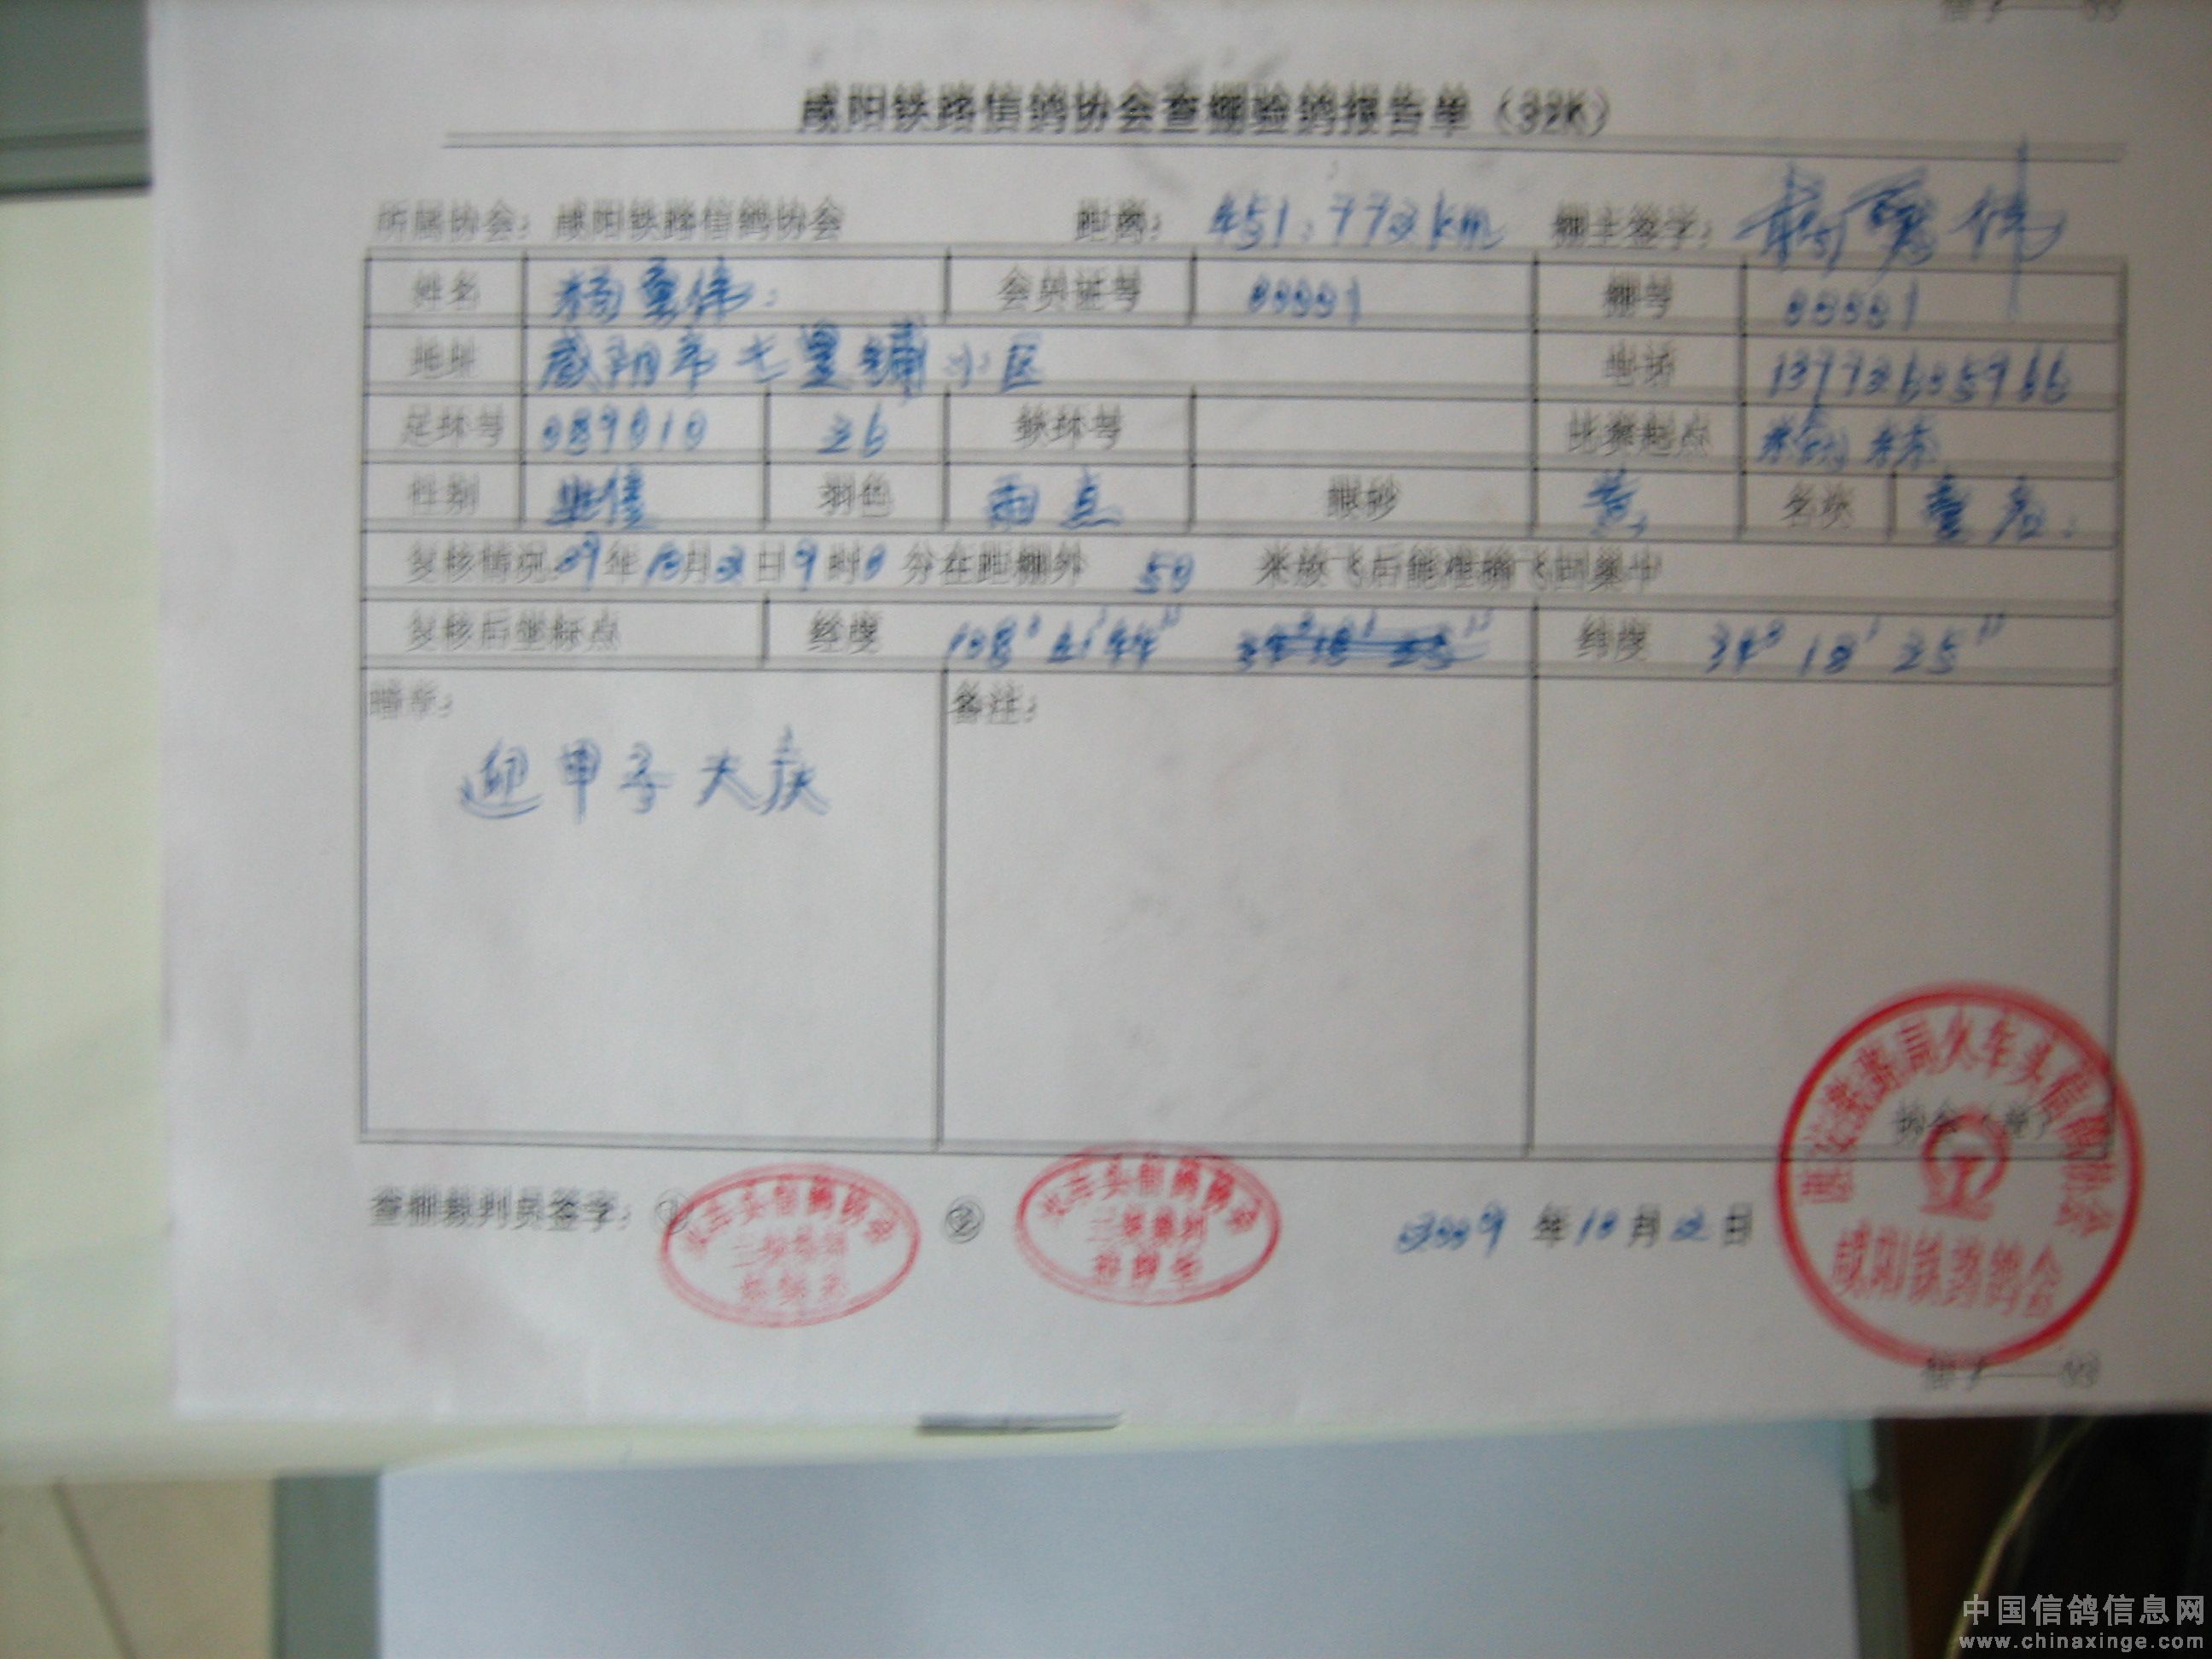 咸阳铁路信鸽协会查棚验鸽报告单（32K）
所属协会：咸阳铁路信鸽协会 距离：451.772km 棚主签字：
姓名 杨 伟 会员证号 00001 棚号 00001
地址 咸阳市七里铺小区 电话
足环号 089010 26 铁环号 比赛起点 榆林
性别 雌 羽色 雨点 眼砂 黄 名次
复核情况：09年10月2日9时0分在距棚外 50 米放飞后能准确飞回巢中
复核后坐标点 经度 108°41′44″ 纬度 34°18′25″
暗章： 备注：
迎甲子大庆
协会（章）
查棚裁判员签字：① ② 2009年10月2日
西安铁路局火车头信鸽协会
咸阳铁路鸽会
火车头信鸽协会
火车头信鸽协会
中国信鸽信息网
www.chinaxinge.com